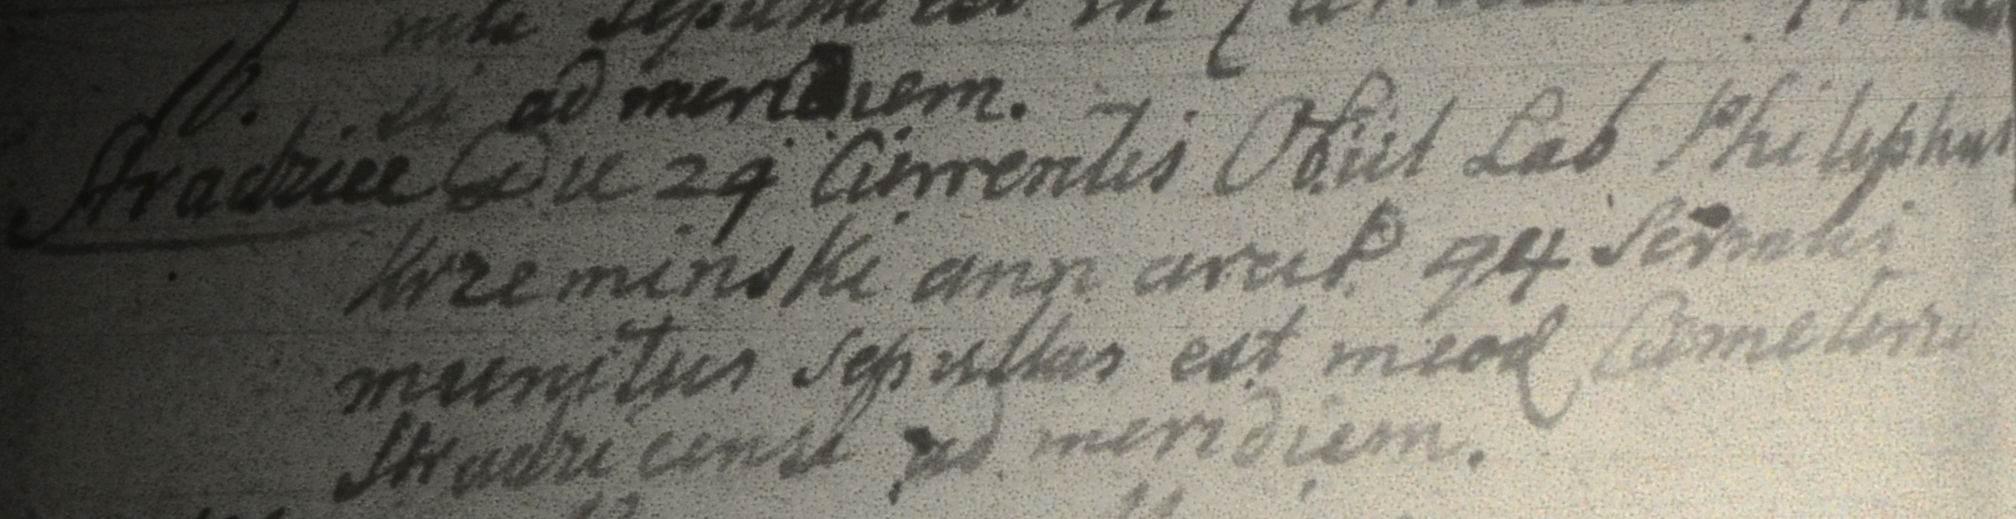 sepultus est in
16. si ad meridiem.
Stradzice Die 24 Currentis Obiit Lab Philiphus
Krzeminski ann. circit. 94 Scrmtis
munitus sepultus est in eod Cemeterio
Stradzicensi ad meridiem.